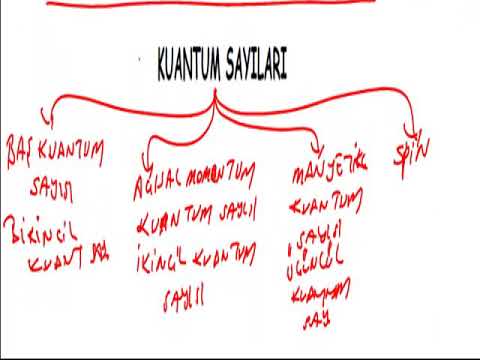 KUANTUM SAYILARI
BAŞ KUANTUM
SAYISI
BİRİNCİL
KUANT
AÇISAL MOMENTUM
KUANTUM SAYISI
İKİNCİL KUANTUM
SAYISI
MANYETİK
KUANTUM
SAYISI
ÜÇÜNCÜL
KUANTUM
SAY
SPİN